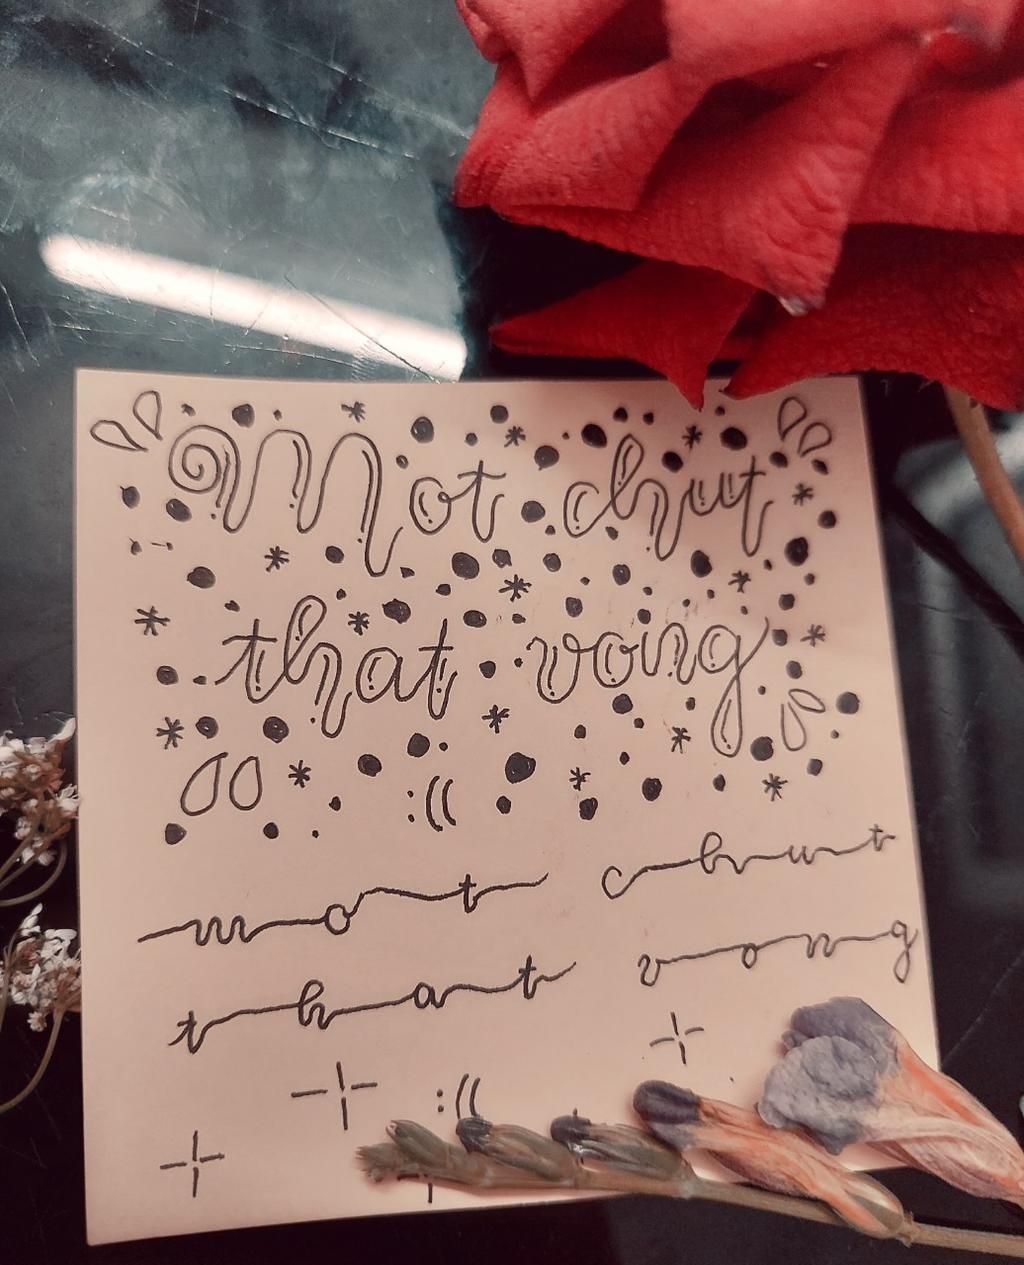 Mot chut
that vong
:((
mot chut
that vong
:((